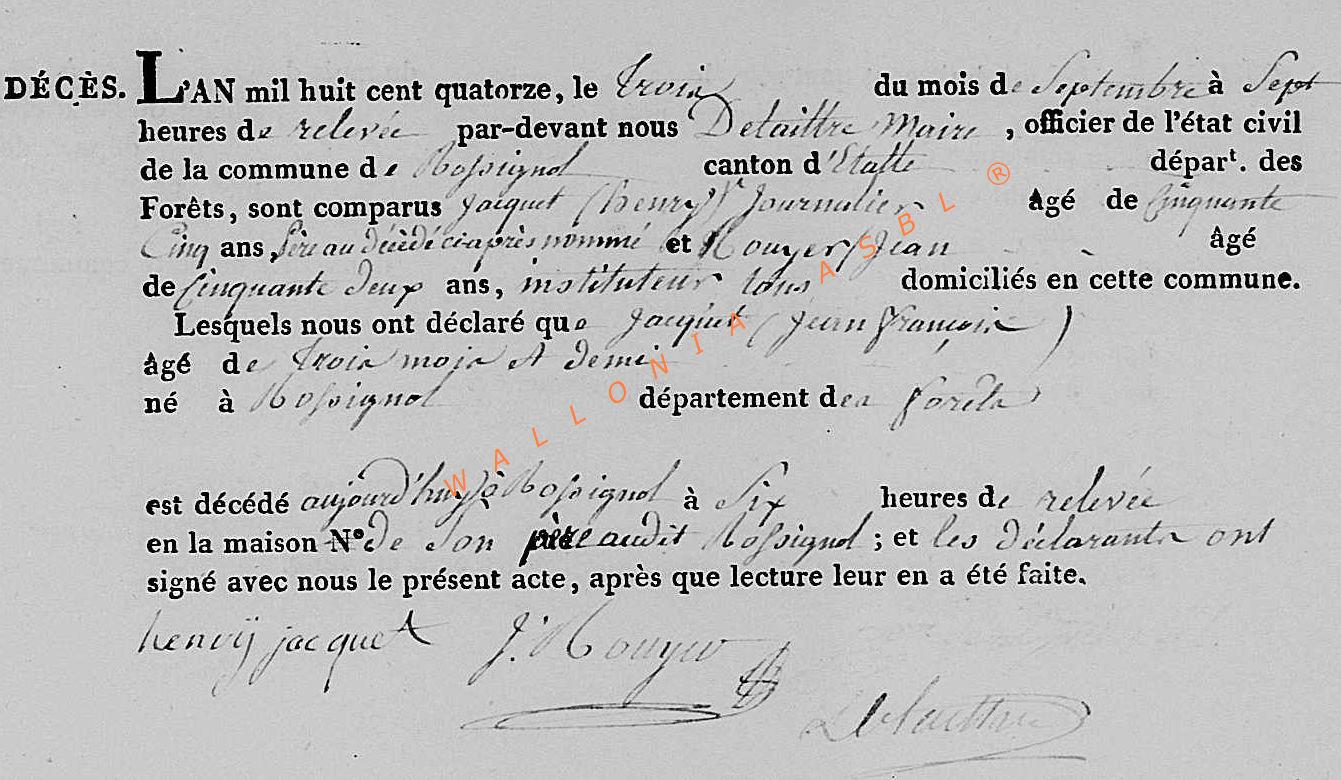 DÉCÈS. L'AN mil huit cent quatorze, le trois du mois de Septembre à Sept
heures de relevée par-devant nous Delaittre Maire, officier de l'état civil
de la commune de Rossignol canton d'Etalle départ. des
Forêts, sont comparus Jacquet (henry) Journalier âgé de Cinquante
Cinq ans, Père au décédé ciaprès nommé et Rouyer Jean âgé
de Cinquante deux ans, instituteur tous domiciliés en cette commune.
Lesquels nous ont déclaré que Jacquet (Jean françois)
âgé de trois mois et demi
né à Rossignol département des forêts
est décédé aujourd'huy à Rossignol à Six heures de relevée
en la maison N° de Son père audit Rossignol; et les déclarants ont
signé avec nous le présent acte, après que lecture leur en a été faite.
henrij jacquet J. Rouyer
Delaittre
WALLONIA ASBL ®